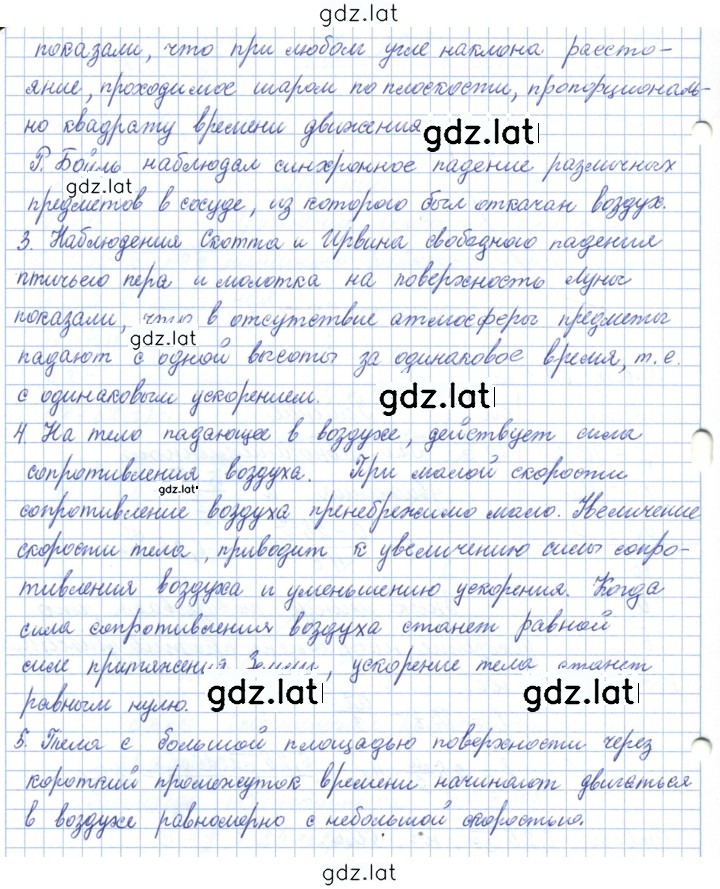 gdz.lat
показали, что при любом угле наклона рассто-
яние, проходимое шаром по плоскости, пропорциональ-
но квадрату времени движения
gdz.lat
Р. Бойль наблюдал синхронное падение различных
gdz.lat
предметов в сосуде, из которого был откачан воздух.
3. Наблюдения Скотта и Ирвина свободного падения
птичьего пера и молотка на поверхность Луны
показали, что в отсутствие атмосферы предметы
gdz.lat
падают с одной высоты за одинаковое время, т.е.
с одинаковым ускорением.
gdz.lat
4 На тело падающее в воздухе, действует сила
сопротивления воздуха. При малой скорости
gdz.lat
сопротивление воздуха пренебрежимо мало. Увеличение
скорости тела, приводит к увеличению силы сопро-
тивления воздуха и уменьшению ускорения. Когда
сила сопротивления воздуха станет равной
силе притяжения Земли, ускорение тела станет
gdz.lat gdz.lat
равным нулю.
5. Тела с большой площадью поверхности через
короткий промежуток времени начинают двигаться
в воздухе равномерно с небольшой скоростью.
gdz.lat